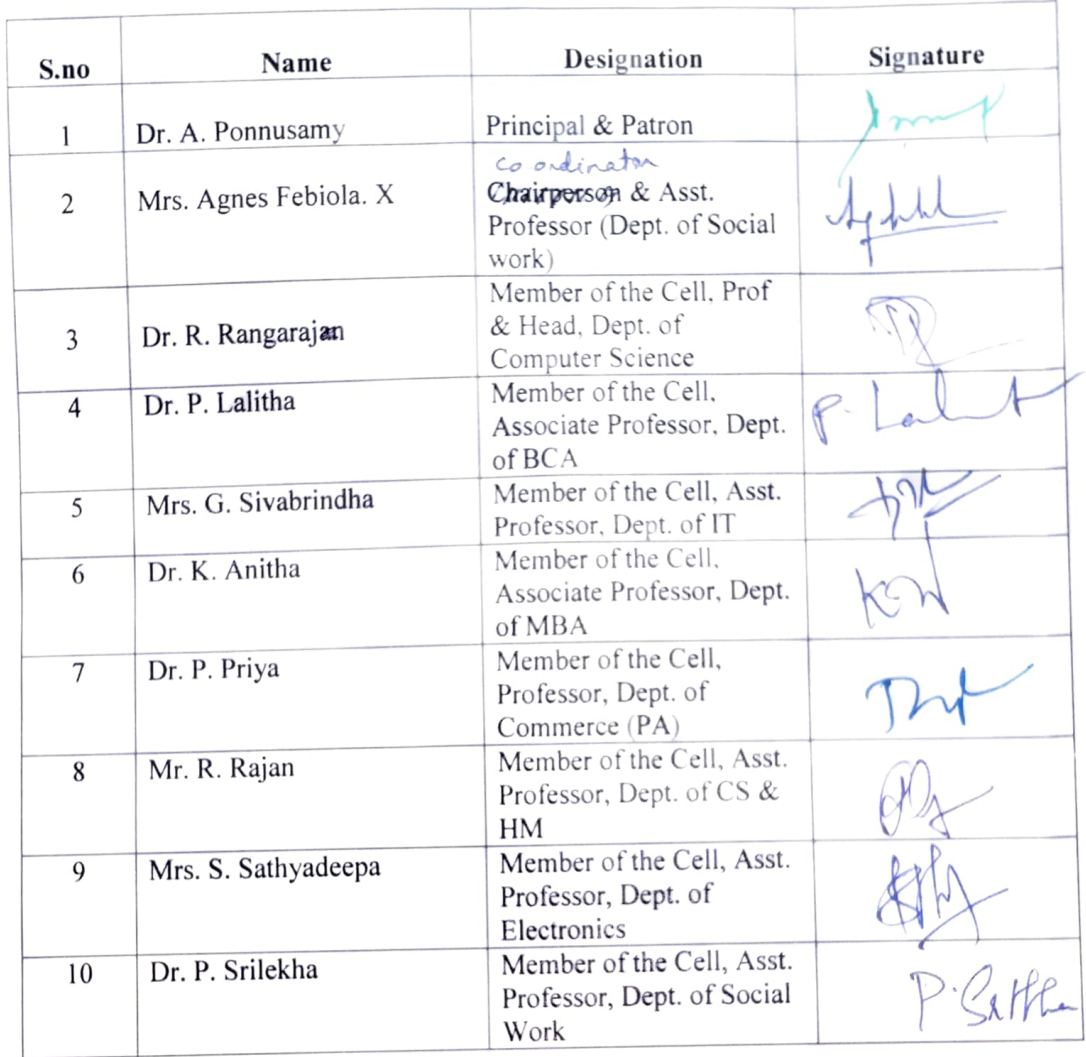 S.no Name Designation Signature
1 Dr. A. Ponnusamy Principal & Patron
co ordinator
2 Mrs. Agnes Febiola. X Chairperson & Asst.
Professor (Dept. of Social
work)
3 Dr. R. Rangarajan Member of the Cell, Prof
& Head, Dept. of
Computer Science
4 Dr. P. Lalitha Member of the Cell, P. Lalit
Associate Professor, Dept.
of BCA
5 Mrs. G. Sivabrindha Member of the Cell, Asst.
Professor, Dept. of IT
6 Dr. K. Anitha Member of the Cell,
Associate Professor, Dept.
of MBA
7 Dr. P. Priya Member of the Cell,
Professor, Dept. of
Commerce (PA)
8 Mr. R. Rajan Member of the Cell, Asst.
Professor, Dept. of CS &
HM
9 Mrs. S. Sathyadeepa Member of the Cell, Asst.
Professor, Dept. of
Electronics
10 Dr. P. Srilekha Member of the Cell, Asst.
Professor, Dept. of Social
Work